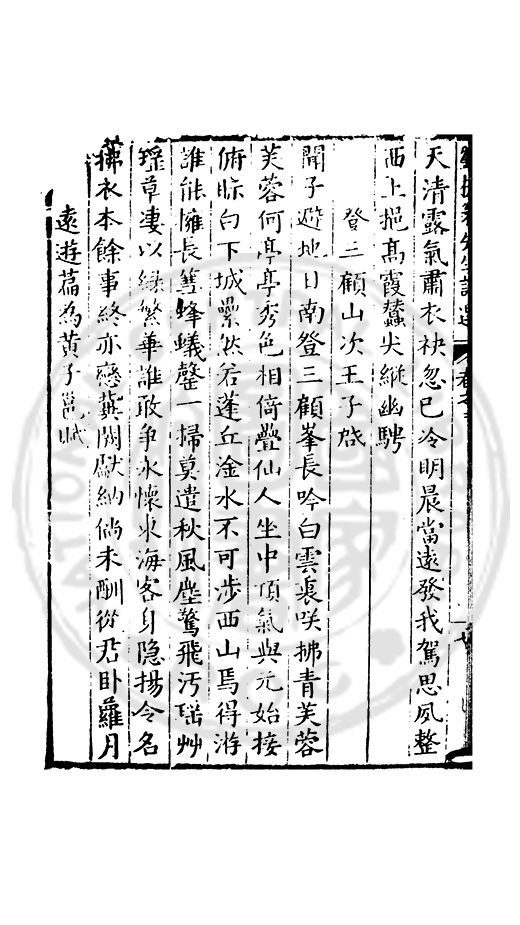 天清露氣肅衣袂忽已冷明晨當遠發我駕思夙整
西上挹高霞蠶尖縱幽騁
登三顧山次王子啟
聞子避地日南登三顧峯長吟白雲裏咲拂青芙蓉
芙蓉何亭亭秀色相倚疊仙人坐中頂氣與元始接
俯眎白下城纍然若蓬丘淦水不可涉西山焉得游
誰能擁長篲蜂蟻罄一掃莫遣秋風塵驚飛汚瑶艸
瑶草凄以綠繁華誰敢爭永懷東海客身隐揚令名
拂衣本餘事終亦戀冀闕獻納倘未酬從君卧蘿月
遠遊篇為黄子邕賦